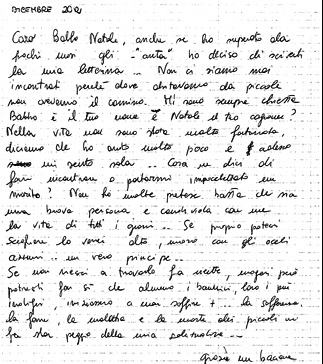 DICEMBRE 2021
Caro Babbo Natale, anche se ho superato da
pochi mesi gli -"anta" ho deciso di scriverti
la mia letterina ... Non ci siamo mai
incontrati perché dove abitavamo da piccole
non avevamo il camino. Mi sono sempre chiesta
Babbo è il tuo nome e Natale il tuo cognome?
Nella vita non sono stata molto fortunata,
diciamo che ho avuto molto poco e adesso
mi sento sola .. Cosa ne dici di
farmi incontrare o portarmi impacchettato un
marito? Non ho molte pretese basta che sia
una brava persona e condivida con me
la vita di tutti i giorni .. Se proprio potessi
scegliere lo vorrei alto, moro con gli occhi
azzurri .. un vero principe ..
Se non riesci a trovarlo fa niente, magari però
potresti far sì che almeno i bambini, loro i più
indifesi, iniziamo a non soffrire + ... la sofferenza,
la fame, la malattia e la morte dei piccoli mi
fa star peggio della mia solitudine ...
Grazie un bacione